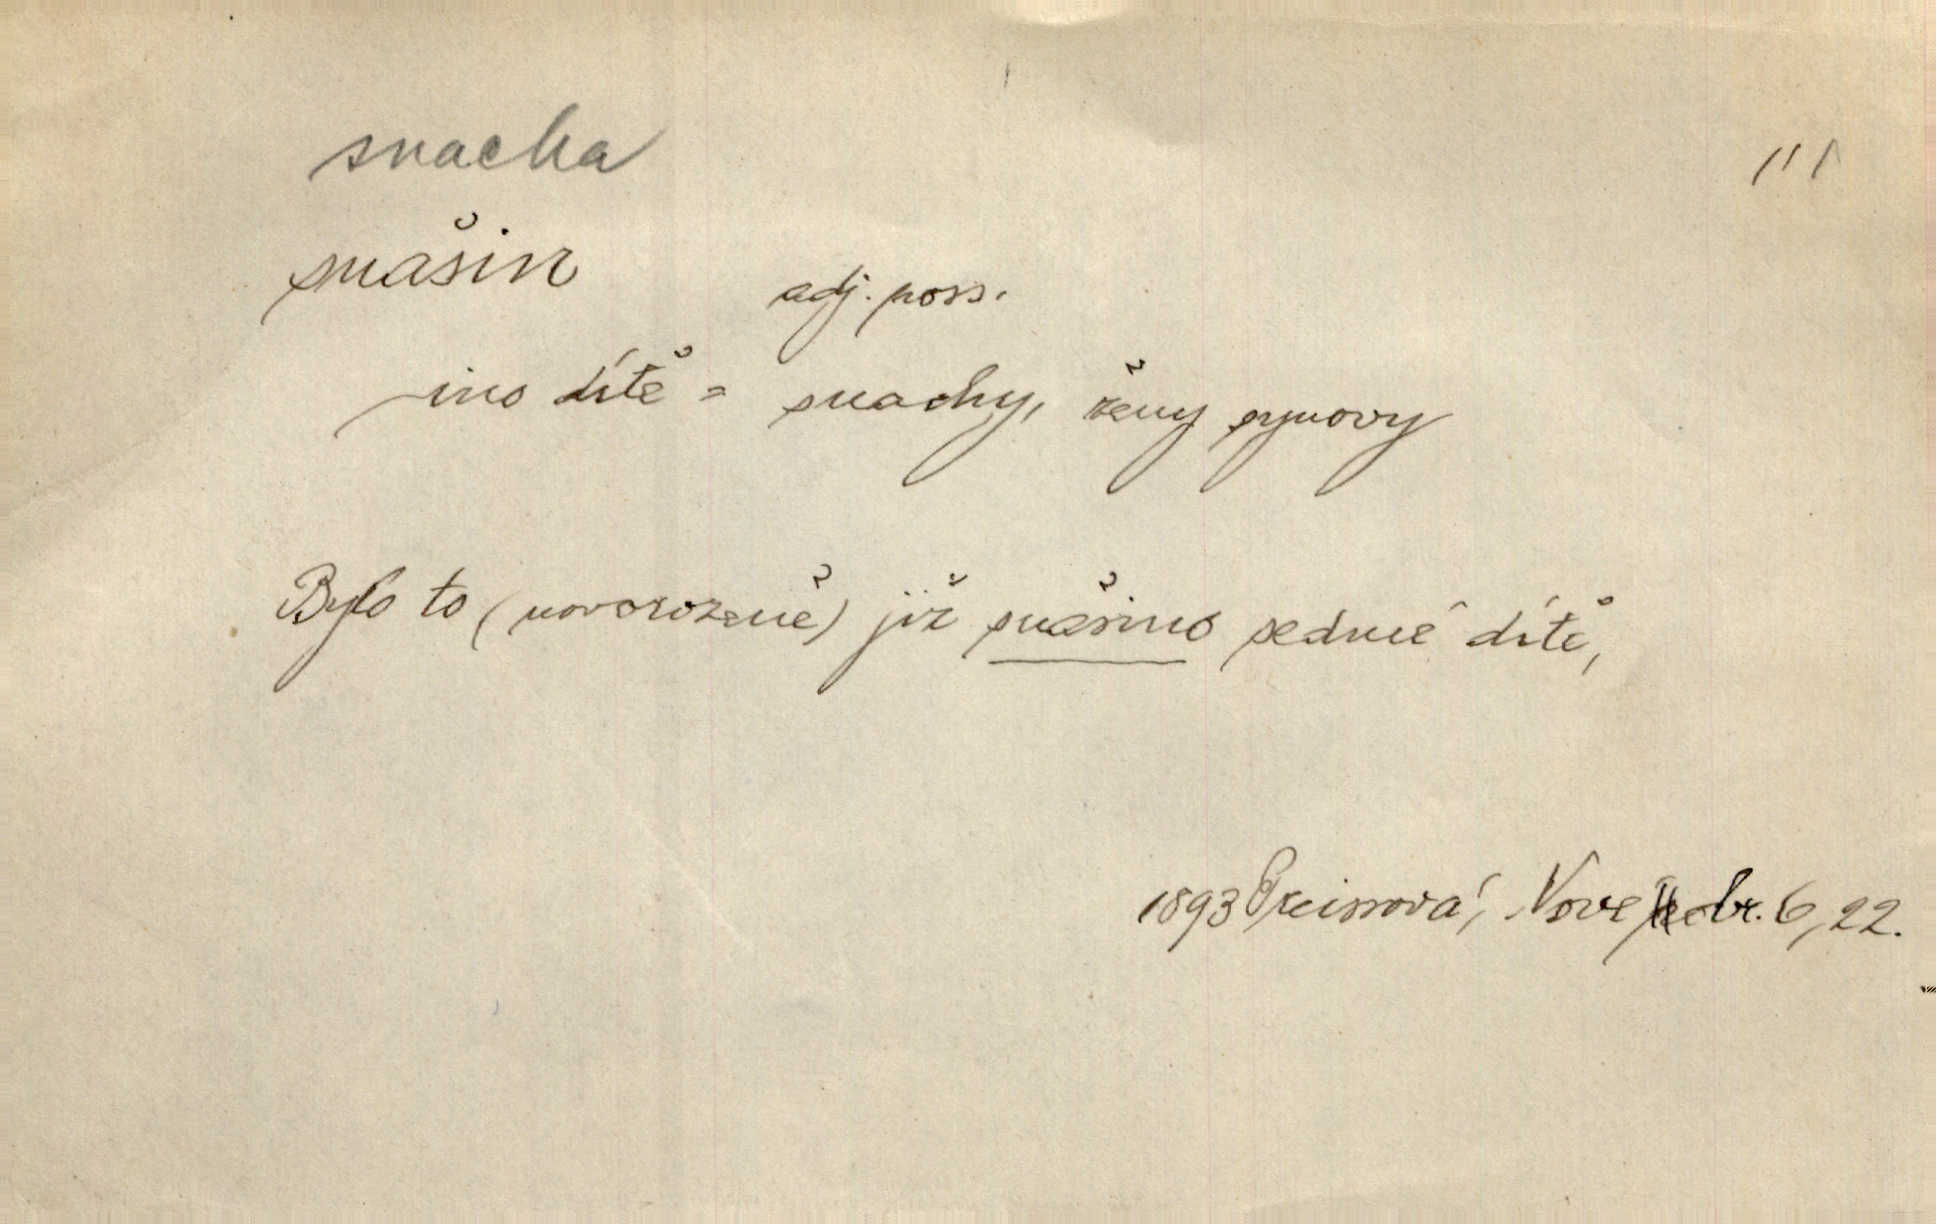 snacha
111
snašin adj. poss.
-ino dítě = snachy, ženy synovy
Bylo to (novorozeně) již snašino sedmé dítě,
1893 Preissová, Nové obr. 6, 22.